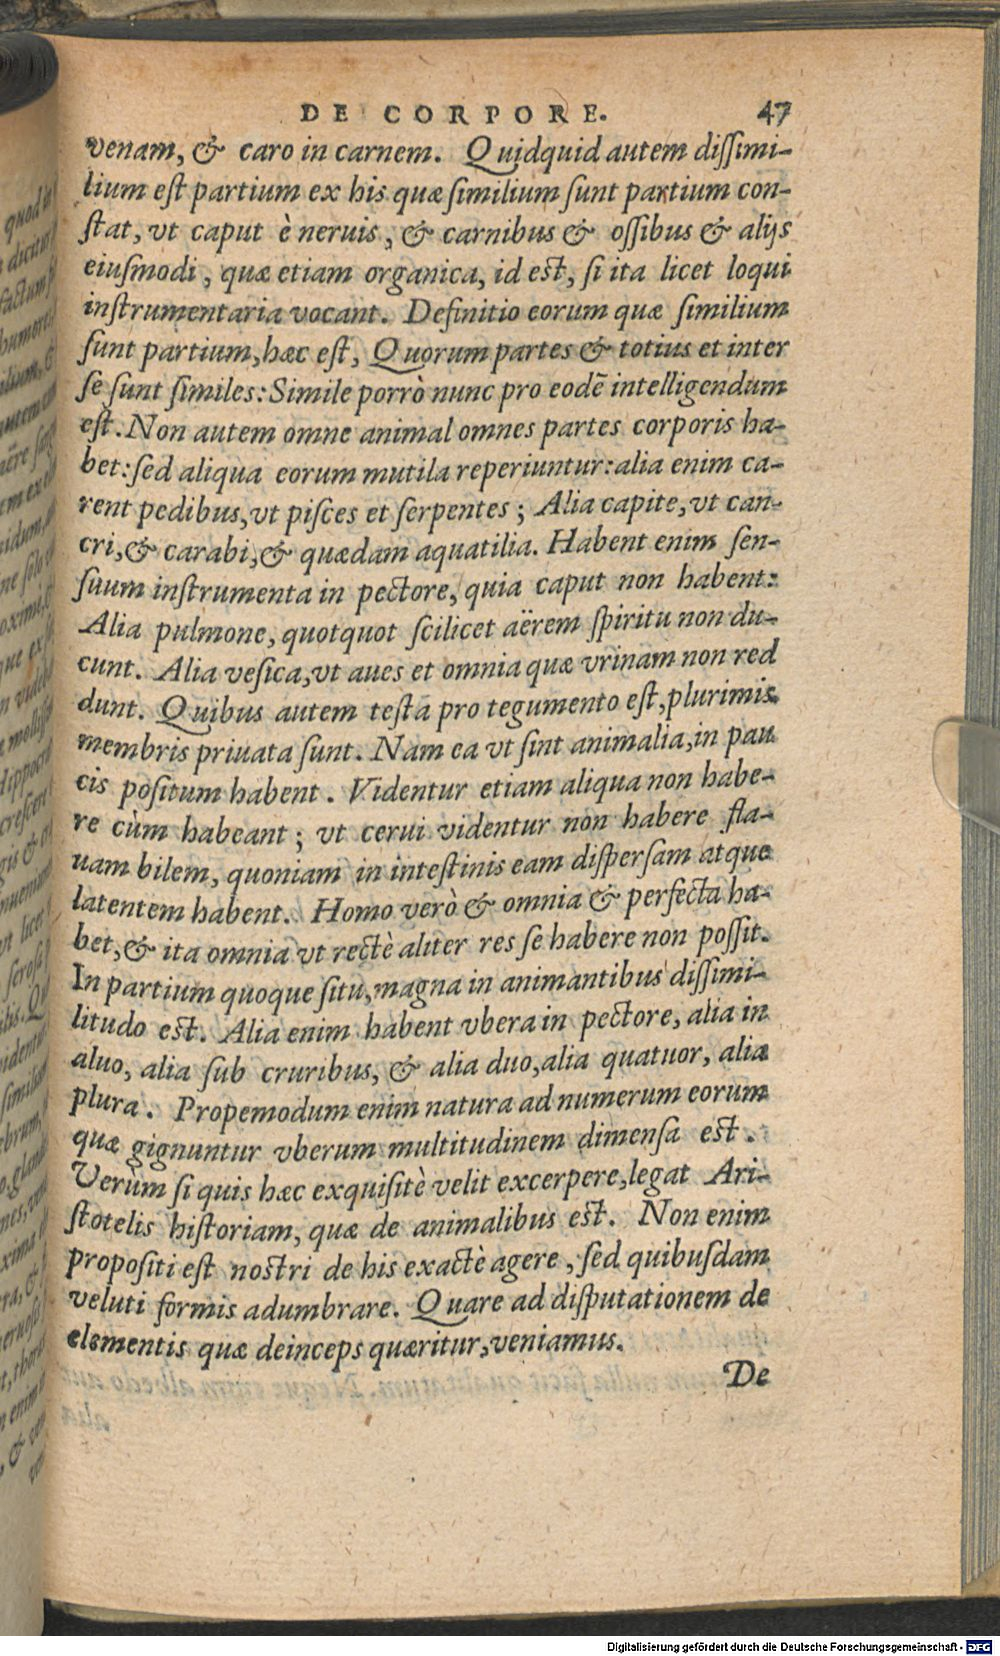 DE CORPORE. 47
venam, & caro in carnem. Quidquid autem dissimi-
lium est partium ex his quæ similium sunt partium con-
stat, vt caput è neruis, & carnibus & ossibus & alijs
eiusmodi, quæ etiam organica, id est, si ita licet loqui
instrumentaria vocant. Definitio eorum quæ similium
sunt partium, hæc est, Quorum partes & totius et inter
se sunt similes: Simile porrò nunc pro eodẽ intelligendum
est. Non autem omne animal omnes partes corporis ha-
bet: sed aliqua eorum mutila reperiuntur: alia enim ca-
rent pedibus, vt pisces et serpentes; Alia capite, vt can-
cri, & carabi, & quædam aquatilia. Habent enim sen-
suum instrumenta in pectore, quia caput non habent:
Alia pulmone, quotquot scilicet aërem spiritu non du-
cunt. Alia vesica, vt aues et omnia quæ vrinam non red
dunt. Quibus autem testa pro tegumento est, plurimis
membris priuata sunt. Nam ea vt sint animalia, in pau
cis positum habent. Videntur etiam aliqua non habe-
re cùm habeant; vt cerui videntur non habere fla-
uam bilem, quoniam in intestinis eam dispersam atque
latentem habent. Homo verò & omnia & perfecta ha-
bet, & ita omnia vt rectè aliter res se habere non possit.
In partium quoque situ, magna in animantibus dissimi-
litudo est. Alia enim habent vbera in pectore, alia in
aluo, alia sub cruribus, & alia duo, alia quatuor, alia
plura. Propemodum enim natura ad numerum eorum
quæ gignuntur vberum multitudinem dimensa est.
Verùm si quis hæc exquisitè velit excerpere, legat Ari-
stotelis historiam, quæ de animalibus est. Non enim
propositi est nostri de his exactè agere, sed quibusdam
veluti formis adumbrare. Quare ad disputationem de
elementis quæ deinceps quæritur, veniamus.
De
Digitalisierung gefördert durch die Deutsche Forschungsgemeinschaft - DFG